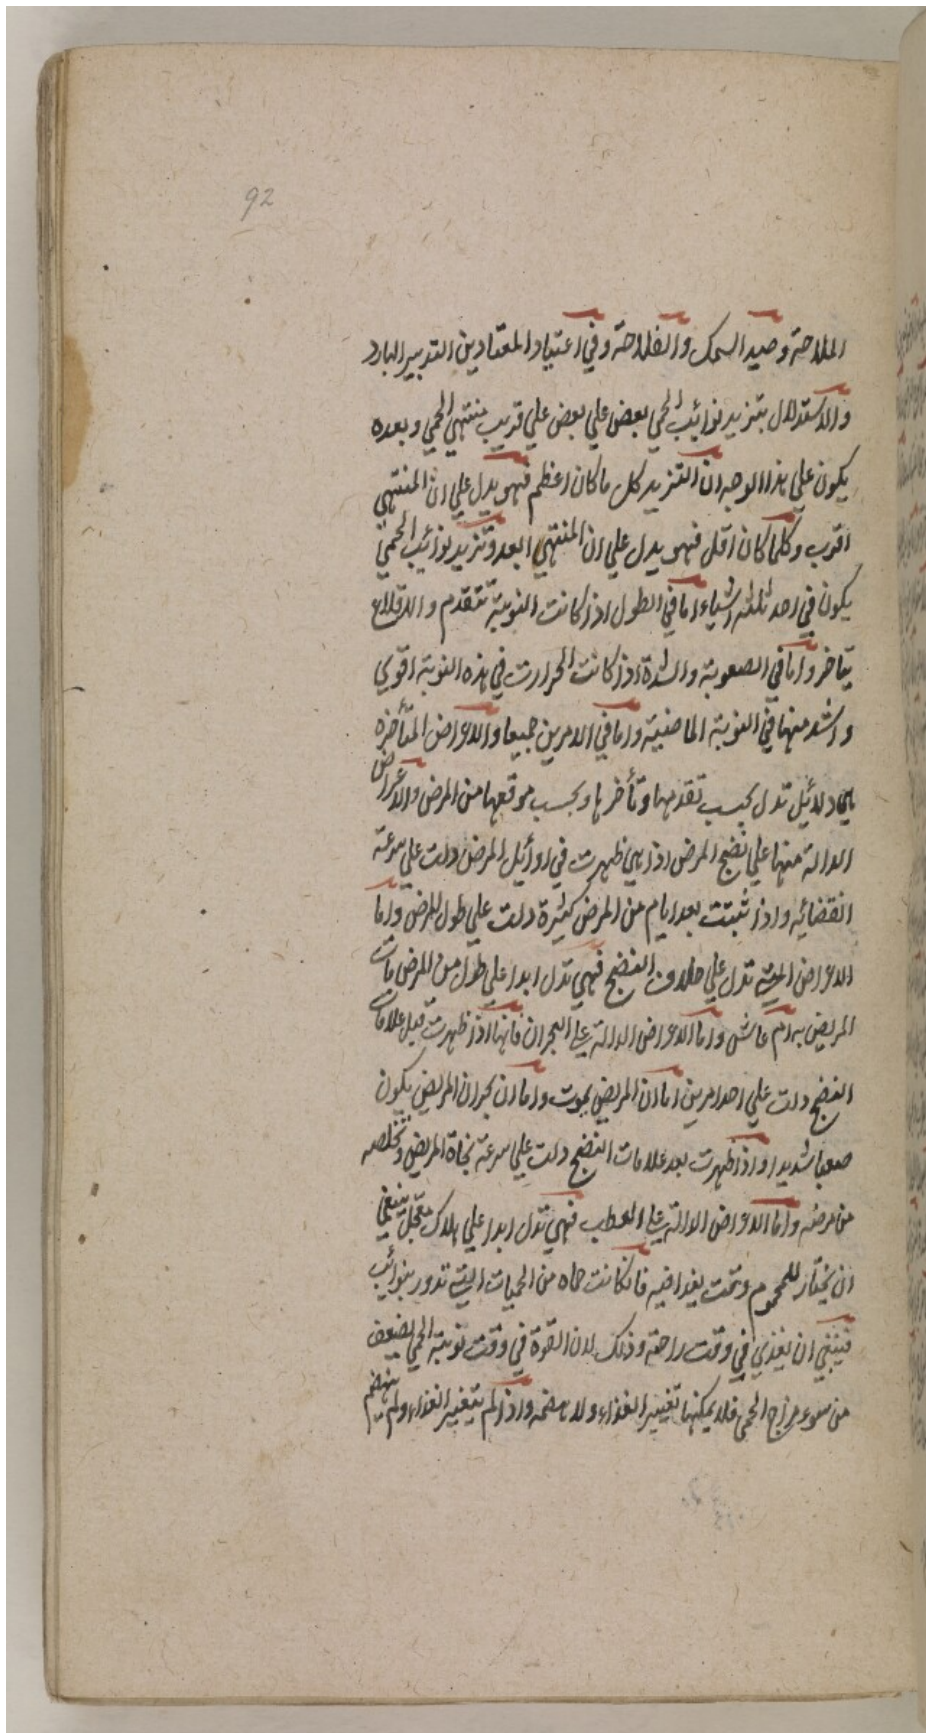 92
الملاحة وصيد السمك والفلاحة وفي اعتياد المعتادين التدبير البارد
والاستدلال بتزيد نوائب الحمي بعض علي بعض علي قريب منتهي الحمي وبعده
يكون علي هذا الوجه ان التزيد كل ما كان اعظم فهو يدل علي ان المنتهي
اقرب وكلما كان اقل فهو يدل علي ان المنتهي ابعد وتزيد نوائب الحمي
يكون في احد ثلثه اشياء اما في الطول اذا كانت النوبة تتقدم والاقلاع
يتاخر واما في الصعوبة والشدة اذا كانت الحرارت في هذه النوبة اقوي
واشد منها في النوبة الماضية واما في الامرين جميعا والاعراض المتأخره
هي دلائل تدل بحسب تقدمها وتأخرها وبحسب موقعها من المرض والاعراض
الدالة منها علي نضج المرض اذا هي ظهرت في اوائل المرض دلت علي سرعة
انقضائه واذا ثبتت بعد ايام من المرض كثيرة دلت علي طول المرض واما
الاعراض التي تدل علي خلاف النضج فهي تدل ابدا علي طول من المرض مات
المريض به ام عاش واما الاعراض الدالة علي البحران فانها اذا ظهرت قبل علامات
النضج دلت علي احد امرين اما ان المريض يموت واما ان بحران المريض يكون
صعبا شديدا واذا ظهرت بعد علامات النضج دلت علي سرعة نجاة المريض وتخلصه
من مرضه واما الاعراض الدالة علي العطب فهي تدل ابدا علي هلاك معجل ينبغي
ان يختار للمحموم وقت يغدا فيه فان كانت حماه من الحميات التي تدور بنوائب
فينبغي ان يغذي في وقت راحته وذلك لان القوة في وقت نوبة الحمي يضعف
من سوء مزاج الحمي فلا يمكنها تغيير الغذاء ولا هضمه واذا لم يتغير الغذاء ولم ينهضم